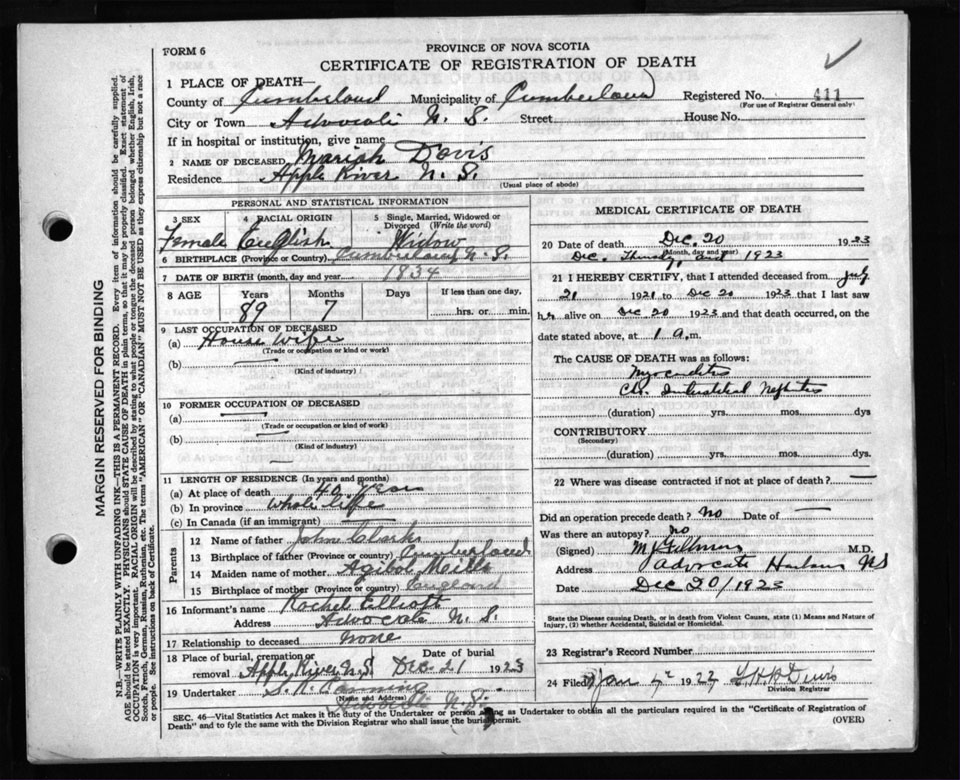 FORM 6
PROVINCE OF NOVA SCOTIA
CERTIFICATE OF REGISTRATION OF DEATH
1 PLACE OF DEATH—
County of Cumberland Municipality of Cumberland Registered No. 411
(For use of Registrar General only)
City or Town Advocate N. S. Street House No.
If in hospital or institution, give name
2 NAME OF DECEASED Mariah Davis
Residence Apple River N. S.
(Usual place of abode)
PERSONAL AND STATISTICAL INFORMATION
3 SEX 4 RACIAL ORIGIN 5 Single, Married, Widowed or Divorced (Write the word)
Female English Widow
6 BIRTHPLACE (Province or Country) Cumberland N. S.
7 DATE OF BIRTH (month, day and year) 1834
8 AGE Years Months Days If less than one day,
89 7 hrs. or min.
9 LAST OCCUPATION OF DECEASED
(a) House Wife
(Trade or occupation or kind of work)
(b)
(Kind of industry)
10 FORMER OCCUPATION OF DECEASED
(a)
(Trade or occupation or kind of work)
(b)
(Kind of industry)
11 LENGTH OF RESIDENCE (In years and months)
(a) At place of death 40 years
(b) In province Whole life
(c) In Canada (if an immigrant)
Parents
12 Name of father John Clark
13 Birthplace of father (Province or country) Cumberland
14 Maiden name of mother Mills
15 Birthplace of mother (Province or country) England
16 Informant's name Rachel Elliott
Address Advocate N. S.
17 Relationship to deceased None
18 Place of burial, cremation or removal Date of burial
Apple River N.S. Dec. 21 1923
19 Undertaker
(Name and Address)
Advocate N. S.
MEDICAL CERTIFICATE OF DEATH
20 Date of death Dec. 20 1923
(Month, day and year)
Dec. 1923
21 I HEREBY CERTIFY, that I attended deceased from July
21 1921 to Dec 20 1923 that I last saw
her alive on Dec 20 1923 and that death occurred, on
date stated above, at 1 a. m.
The CAUSE OF DEATH was as follows:
Myocarditis
Chr. Interstitial Nephritis
(duration) yrs. mos. dys
CONTRIBUTORY
(Secondary)
(duration) yrs. mos. dys.
22 Where was disease contracted if not at place of death?
Did an operation precede death? No Date of
Was there an autopsy? No
(Signed) M.D.
Address Advocate Harbour NS
Date Dec 20/1923
State the Disease causing Death, or in death from Violent Causes, state (1) Means and Nature of Injury, (2) whether Accidental, Suicidal or Homicidal.
23 Registrar's Record Number
24 Filed Jan
Division Registrar
SEC. 46—Vital Statistics Act makes it the duty of the Undertaker or person acting as Undertaker to obtain all the particulars required in the "Certificate of Registration of
Death" and to fyle the same with the Division Registrar who shall issue the burial permit.
(OVER)
MARGIN RESERVED FOR BINDING
N.B.—WRITE PLAINLY WITH UNFADING INK.—THIS IS A PERMANENT RECORD. Every item of information should be carefully supplied.
AGE should be stated EXACTLY. PHYSICIANS should STATE CAUSE OF DEATH in plain terms, so that it may be properly classified. Exact statement of
OCCUPATION is very important. RACIAL ORIGIN will be described by stating to what people or tongue the deceased person belonged whether English, Irish,
Scotch, French, German, Russian, Ruthenian, etc. The terms "AMERICAN" or "CANADIAN" MUST NOT BE USED as they express citizenship but not a race
or people. See instructions on back of Certificate.